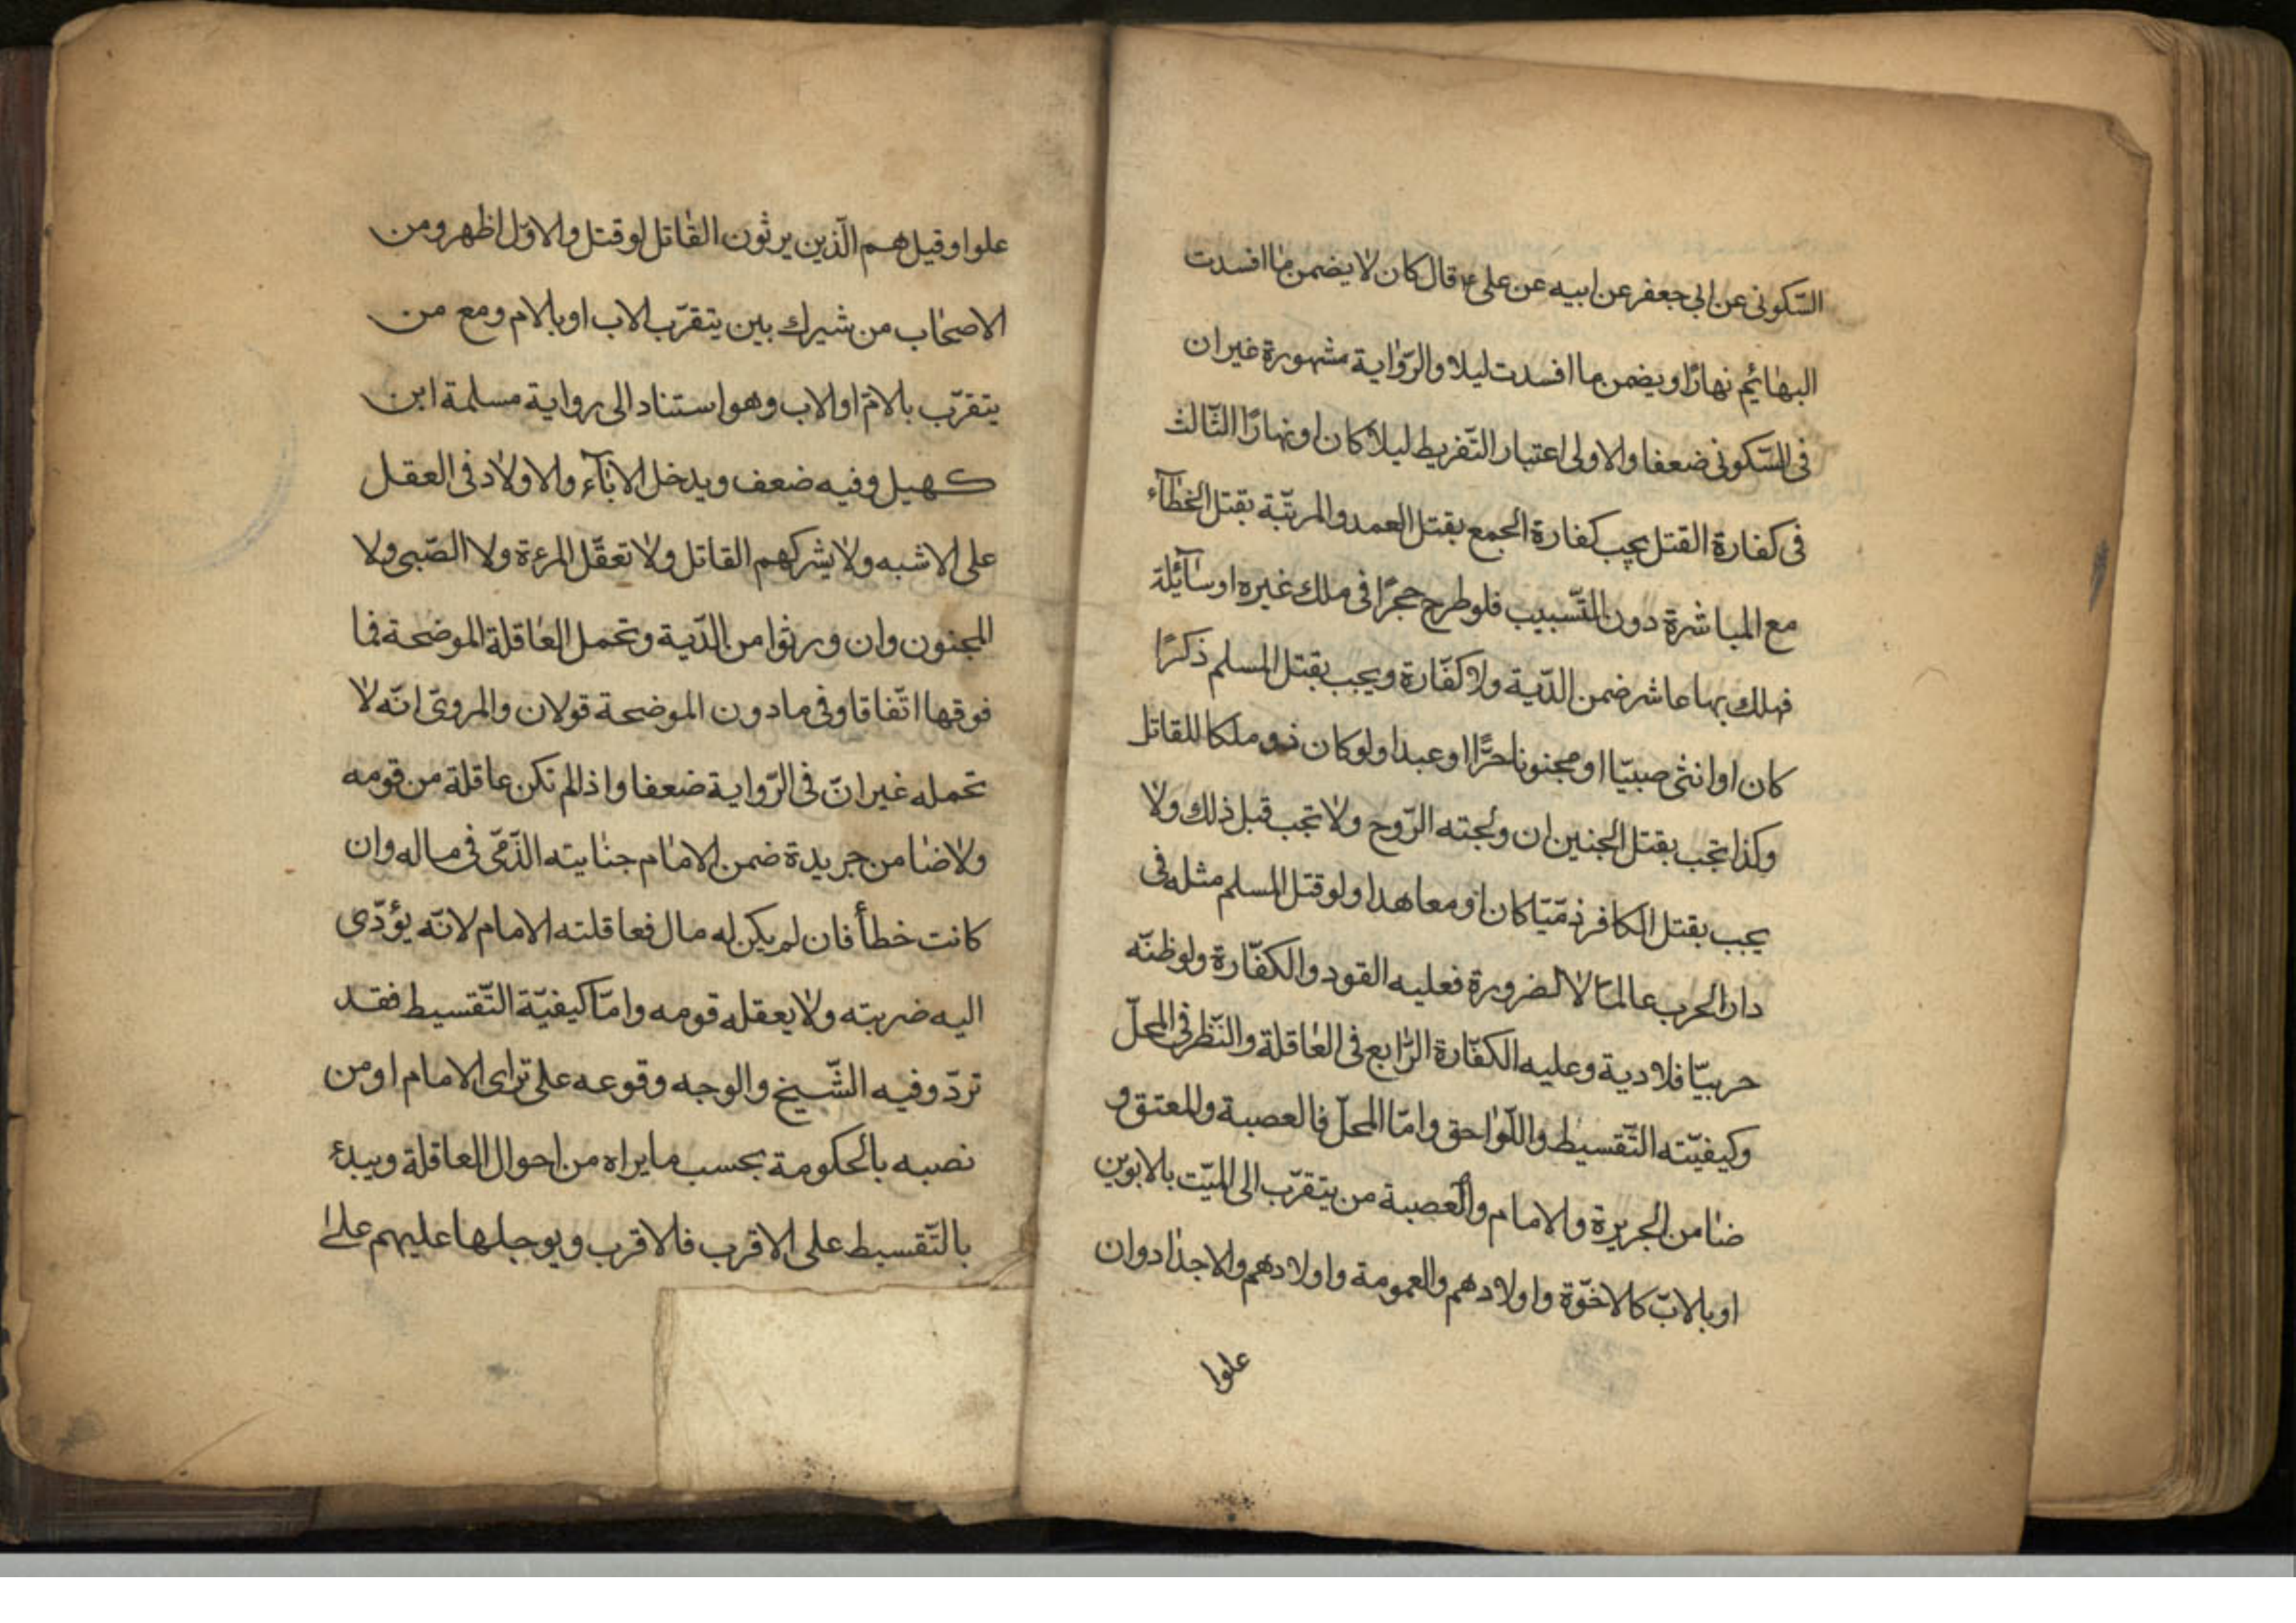 السّكونى عن ابى جعفر عن ابيه عن على ع قال كان لا يضمن ما افسدت
البهائم نهارًا ويضمن ما افسدت ليلا والرّواية مشهورة غير ان
فى السّكونى ضعفا والاولى اعتبار التّفريط ليلا كان او نهارًا الثّالث
فى كفارة القتل يجب كفارة الجمع بقتل العمد والمرتّبة بقتل الخطآء
مع المباشرة دون التّسبيب فلو طرح حجرًا فى ملك غيره او سآئلة
فهلك بها عاشر ضمن الدّية ولا كفّارة ويجب بقتل المسلم ذكرًا
كان او انثى صبيّا او مجنونا حرًّا او عبدا ولو كان ذو ملكا للقاتل
وكذا تجب بقتل الجنين ان ولجته الرّوح ولا تجب قبل ذلك ولا
يجب بقتل الكافر ذمّيّا كان او معاهدا ولو قتل المسلم مثله فى
دار الحرب عالمًا لا لضرورة فعليه القود والكفّارة ولو ظنّه
حربيّا فلا دية وعليه الكفّارة الرّابع فى العاقلة والنّظر فى المحلّ
وكيفيّته التّقسيط واللّواحق وامّا المحلّ فالعصبة والمعتق و
ضامن الجريرة والامام والعصبة من يتقرّب الى الميّت بالابوين
او بالابّ كالاخوّة واولادهم والعمومة واولادهم والاجداد وان
علوا
علوا وقيل هم الّذين يرثون القاتل لو قتل والاوّل اظهر ومن
الاصحاب من شيرك بين يتقرّب لاب او بالام ومع من
يتقرّب بلامّ او لاب وهو استناد الى رواية مسلمة ابن
كهيل وفيه ضعف ويدخل الابآء والاولاد فى العقل
على الاشبه ولا يشركهم القاتل ولا تعقّل المرءة ولا الصّبى ولا
المجنون وان ورثوا من الدّية وتحمل العاقلة الموضحة فما
فوقها اتّفاقا وفى مادون الموضحة قولان والمروىّ انّه لا
تحمله غير انّ فى الرّواية ضعفا واذا لم تكن عاقلة من قومه
ولا ضامن جريدة ضمن الامام جنايته الذّمّى فى ماله وان
كانت خطأ فان لم يكن له مال فعاقلته الامام لانّه يؤدّى
اليه ضربته ولا يعقله قومه وامّا كيفيّة التّقسيط فقد
تردّد وفيه الشّيخ والوجه وقوعه على تراى الامام او من
نصبه بالحكومة بحسب ما يراه من احوال العاقلة ويبدء
بالتّقسيط على الاقرب فلاقرب ويوجلها عليهم على